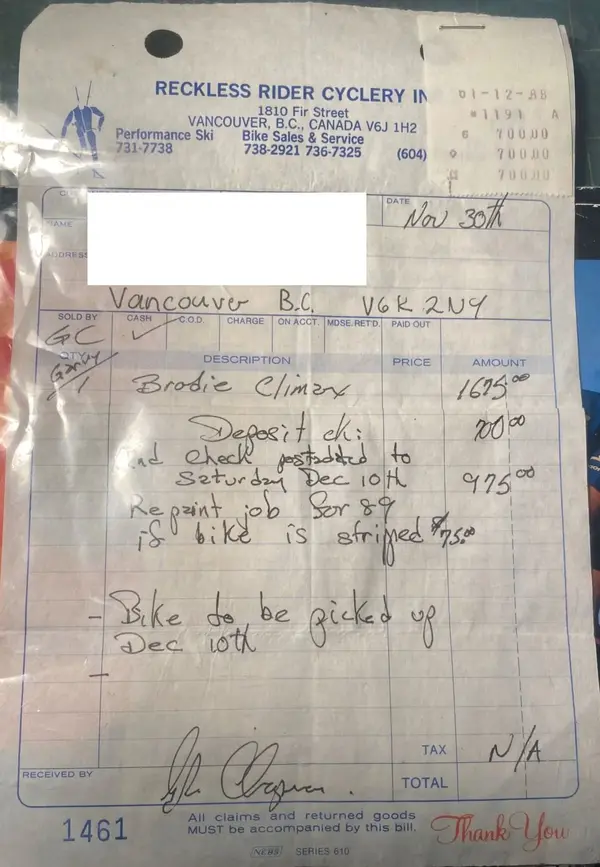 RECKLESS RIDER CYCLERY IN
1810 Fir Street
VANCOUVER, B.C., CANADA V6J 1H2
Performance Ski Bike Sales & Service
731-7738 738-2921 736-7325 (604)
01-12-88
#1191 A
6 700.00
◇1 700.00
700.00
DATE
Nov 30th
NAME
ADDRESS
Vancouver B.C. V6K 2N4
SOLD BY CASH C.O.D. CHARGE ON ACCT. MDSE. RET'D. PAID OUT
GC ✓
QTY. DESCRIPTION PRICE AMOUNT
1 Brodie Climax 1675.00
Deposit ck: 700.00
2nd check postdated to
Saturday Dec 10th 975.00
Repaint job for 89
if bike is striped $75.00
- Bike to be picked up
Dec 10th
-
TAX N/A
RECEIVED BY
TOTAL
1461
All claims and returned goods
MUST be accompanied by this bill.
Thank You
NEBS SERIES 610